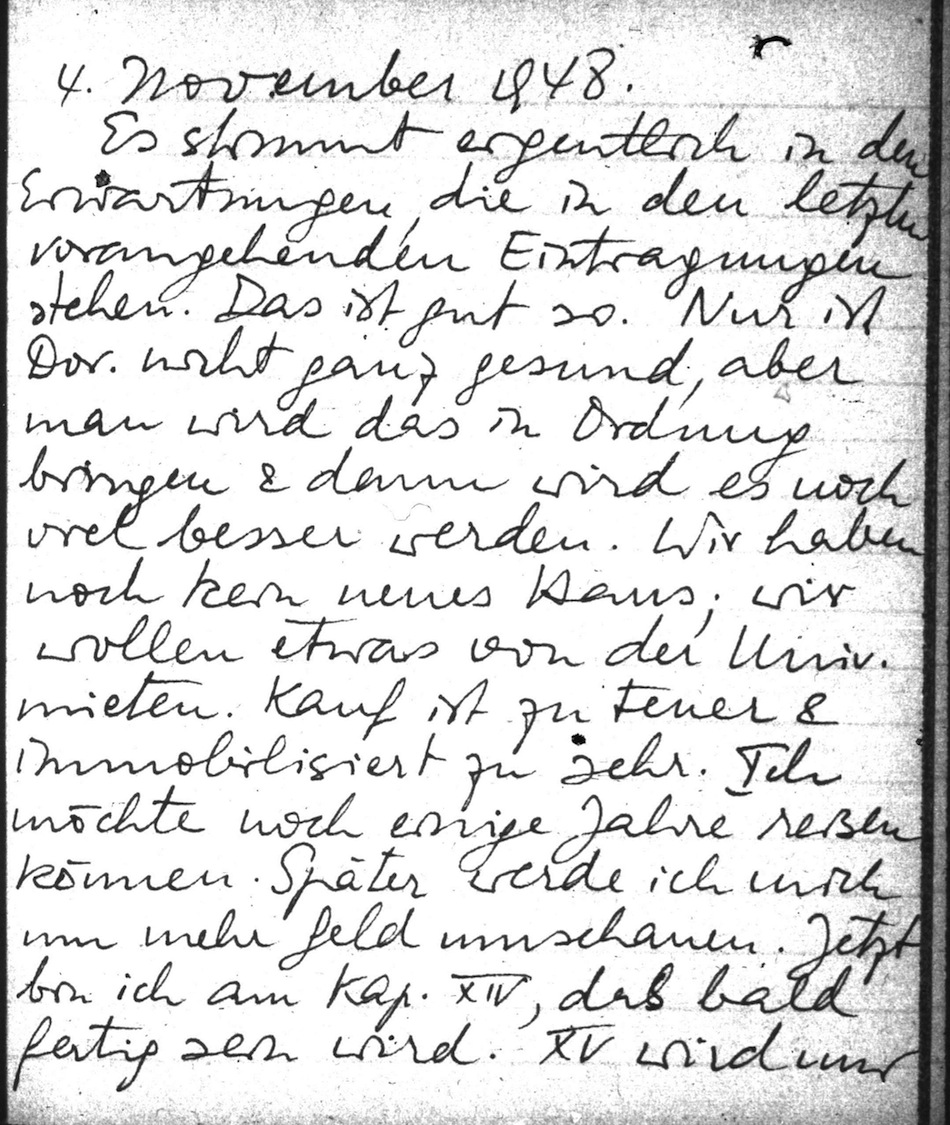 4. November 1948.
Es stimmt eigentlich in den
Erwartungen, die in den letzten
vorangehenden Eintragungen
stehen. Das ist gut so. Nur ist
Dor. nicht ganz gesund, aber
man wird das in Ordnung
bringen & dann wird es noch
viel besser werden. Wir haben
noch kein neues Haus; wir
wollen etwas von der Univ.
mieten. Kauf ist zu teuer &
immobilisiert zu sehr. Ich
möchte noch einige Jahre reisen
können. Später werde ich mich
um mehr Geld umschauen. Jetzt
bin ich am Kap. XIV, das bald
fertig sein wird. XV wird nur